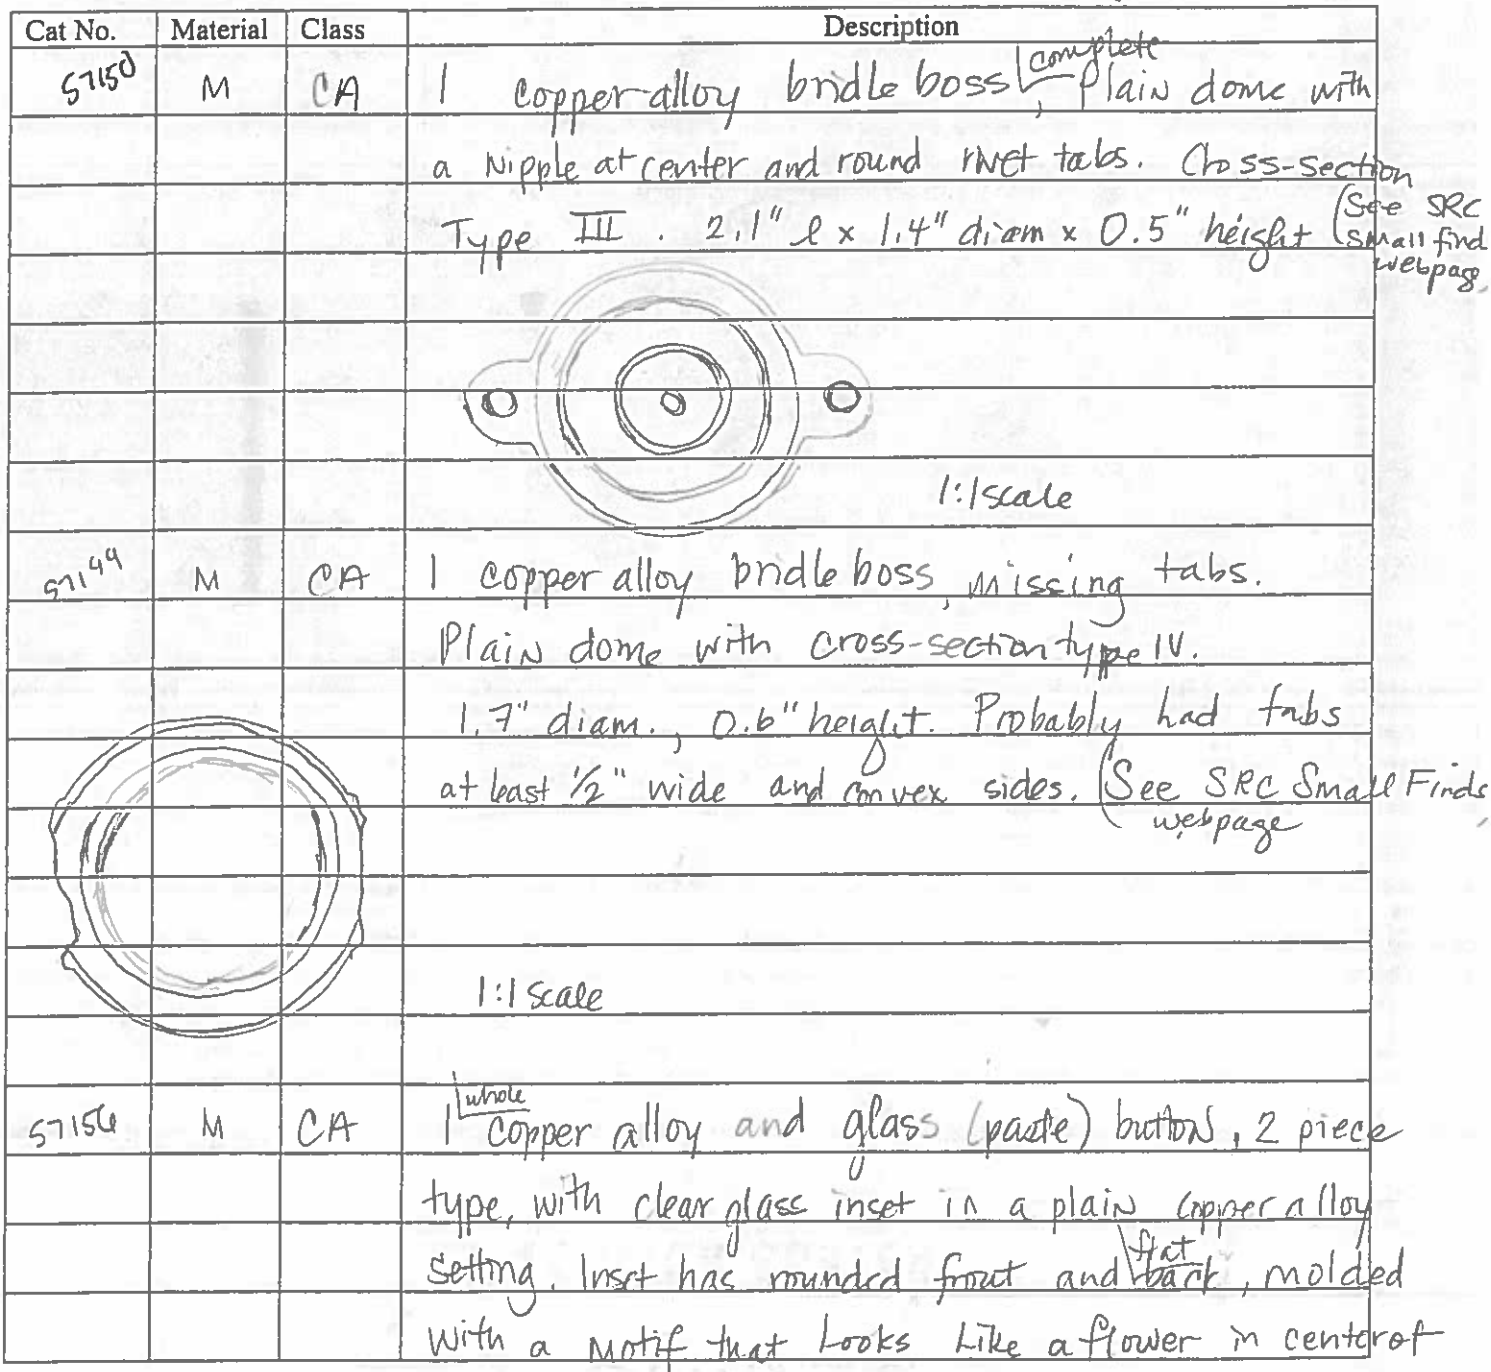 Cat No. Material Class Description
57150 M CA 1 copper-alloy bridle boss, complete, Plain dome with
a Nipple at center and round rivet tabs. Cross-section
Type III. 2.1" l x 1.4" diam x 0.5" height (See SRC
small find
webpage
1:1 scale
57149 M CA 1 copper alloy bridle boss, missing tabs.
Plain dome with cross-section type IV.
1.7" diam., 0.6" height. Probably had tabs
at least 1/2" wide and convex sides. (See SRC Small Finds
webpage
1:1 scale
57156 M CA 1 whole copper alloy and glass (paste) button, 2 piece
type, with clear glass inset in a plain copper alloy
setting. Inset has rounded front and flat back, molded
with a motif that looks like a flower in center of